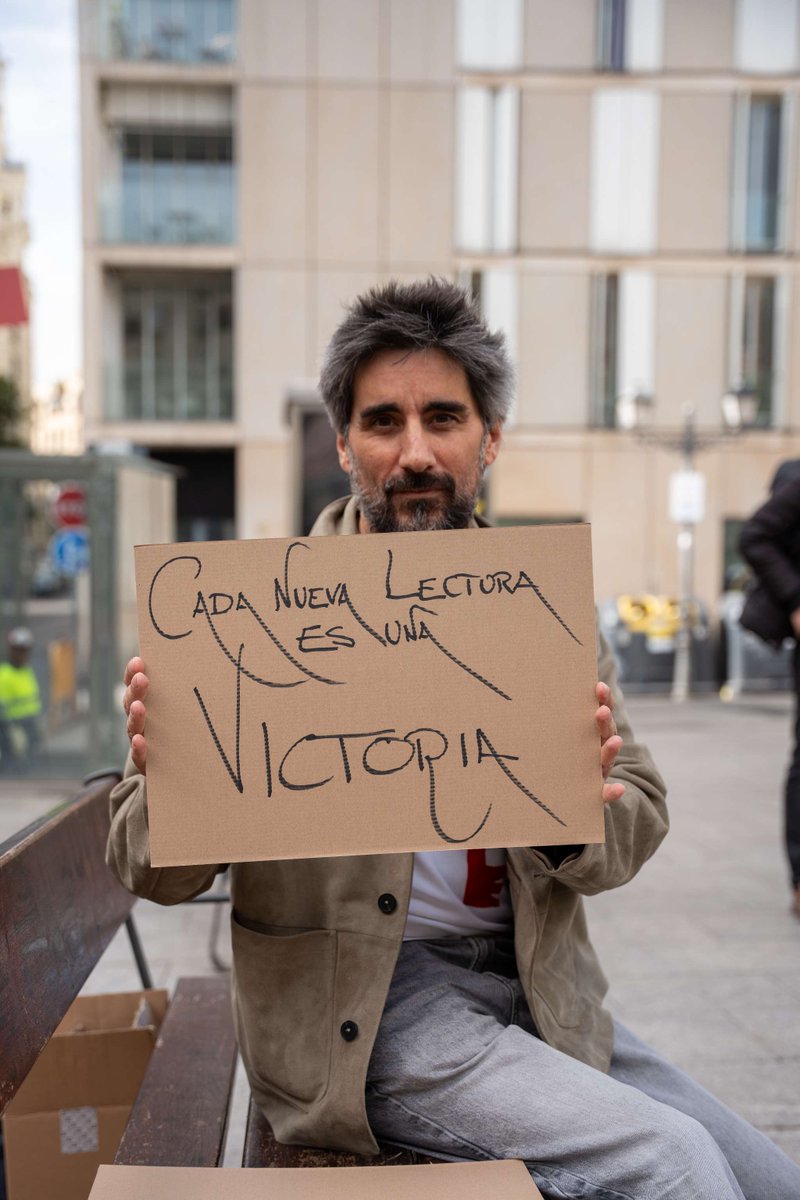 CADA NUEVA LECTURA
ES UÑA
VICTORIA